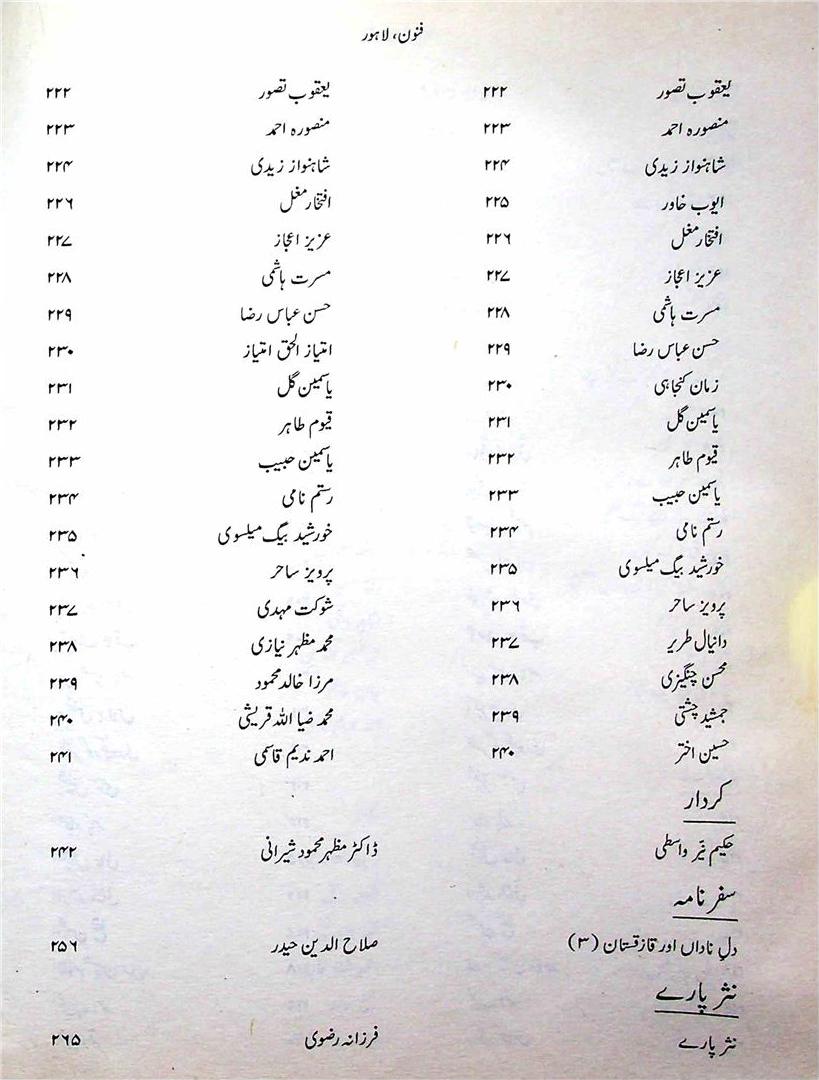 فنون، لاہور
یعقوب تصور ۲۲۲ یعقوب تصور ۲۲۲
منصورہ احمد ۲۲۳ منصورہ احمد ۲۲۳
شاہنواز زیدی ۲۲۴ شاہنواز زیدی ۲۲۴
ایوب خاور ۲۲۵ افتخار مغل ۲۲۶
افتخار مغل ۲۲۶ عزیز اعجاز ۲۲۷
عزیز اعجاز ۲۲۷ مسرت ہاشمی ۲۲۸
مسرت ہاشمی ۲۲۸ حسن عباس رضا ۲۲۹
حسن عباس رضا ۲۲۹ امتیاز الحق امتیاز ۲۳۰
زمان کنجاہی ۲۳۰ یاسمین گل ۲۳۱
یاسمین گل ۲۳۱ قیوم طاہر ۲۳۲
قیوم طاہر ۲۳۲ یاسمین حبیب ۲۳۳
یاسمین حبیب ۲۳۳ رستم نامی ۲۳۴
رستم نامی ۲۳۴ خورشید بیگ میلسوی ۲۳۵
خورشید بیگ میلسوی ۲۳۵ پرویز ساحر ۲۳۶
پرویز ساحر ۲۳۶ شوکت مہدی ۲۳۷
دانیال طریر ۲۳۷ محمد مظہر نیازی ۲۳۸
محسن چنگیزی ۲۳۸ مرزا خالد محمود ۲۳۹
جمشید چشتی ۲۳۹ محمد ضیا اللہ قریشی ۲۴۰
حسین اختر ۲۴۰ احمد ندیم قاسمی ۲۴۱
کردار
حکیم نیّر واسطی ڈاکٹر مظہر محمود شیرانی ۲۴۲
سفر نامہ
دلِ ناداں اور قازقستان (۳) صلاح الدین حیدر ۲۵۶
نثر پارے
نثر پارے فرزانہ رضوی ۲۶۵